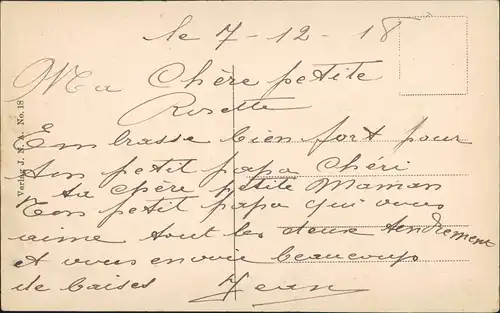 le 7-12-18
Ma Chère petite
Rosette
Embrasse bien fort pour
ton petit papa Chéri
ta chère petite Maman
Ton petit papa qui vous
aime tout les deux tendrement
et vous envoie beaucoup
de baises Jean
Verlag J. N. A. No. 18